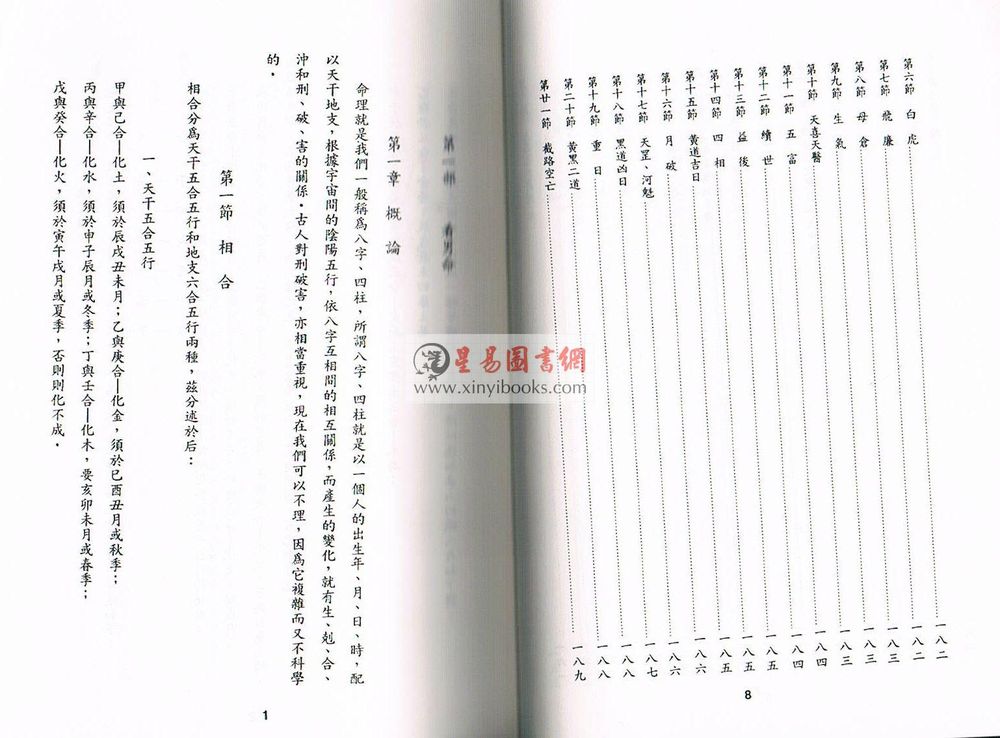 第六節 白虎 一八二
第七節 飛廉 一八二
第八節 母倉 一八三
第九節 生氣 一八三
第十節 天喜天醫 一八三
第十一節 五富 一八四
第十二節 續世 一八四
第十三節 益後 一八五
第十四節 四相 一八五
第十五節 黃道吉日 一八五
第十六節 月破 一八六
第十七節 天罡、河魁 一八六
第十八節 黑道凶日 一八七
第十九節 重日 一八八
第二十節 黃黑二道 一八八
第廿一節 截路空亡 一八九
8
第一章 概論
命理就是我們一般稱爲八字、四柱，所謂八字、四柱就是以一個人的出生年、月、日、時，配
以天干地支，根據宇宙間的陰陽五行，依八字互相間的相互關係，而產生的變化，就有生、剋、合、
沖和刑、破、害的關係。古人對刑破害，亦相當重視，現在我們可以不理，因爲它複雜而又不科學
的。
第一節 相合
相合分爲天干五合五行和地支六合五行兩種，茲分述於后：
一、天干五合五行
甲與己合—化土，須於辰戌丑未月；乙與庚合—化金，須於巳酉丑月或秋季；
丙與辛合—化水，須於申子辰月或冬季；丁與壬合—化木，要亥卯未月或春季；
戊與癸合—化火，須於寅午戌月或夏季，否則則化不成。
1
星易圖書網
www.xinyibooks.com